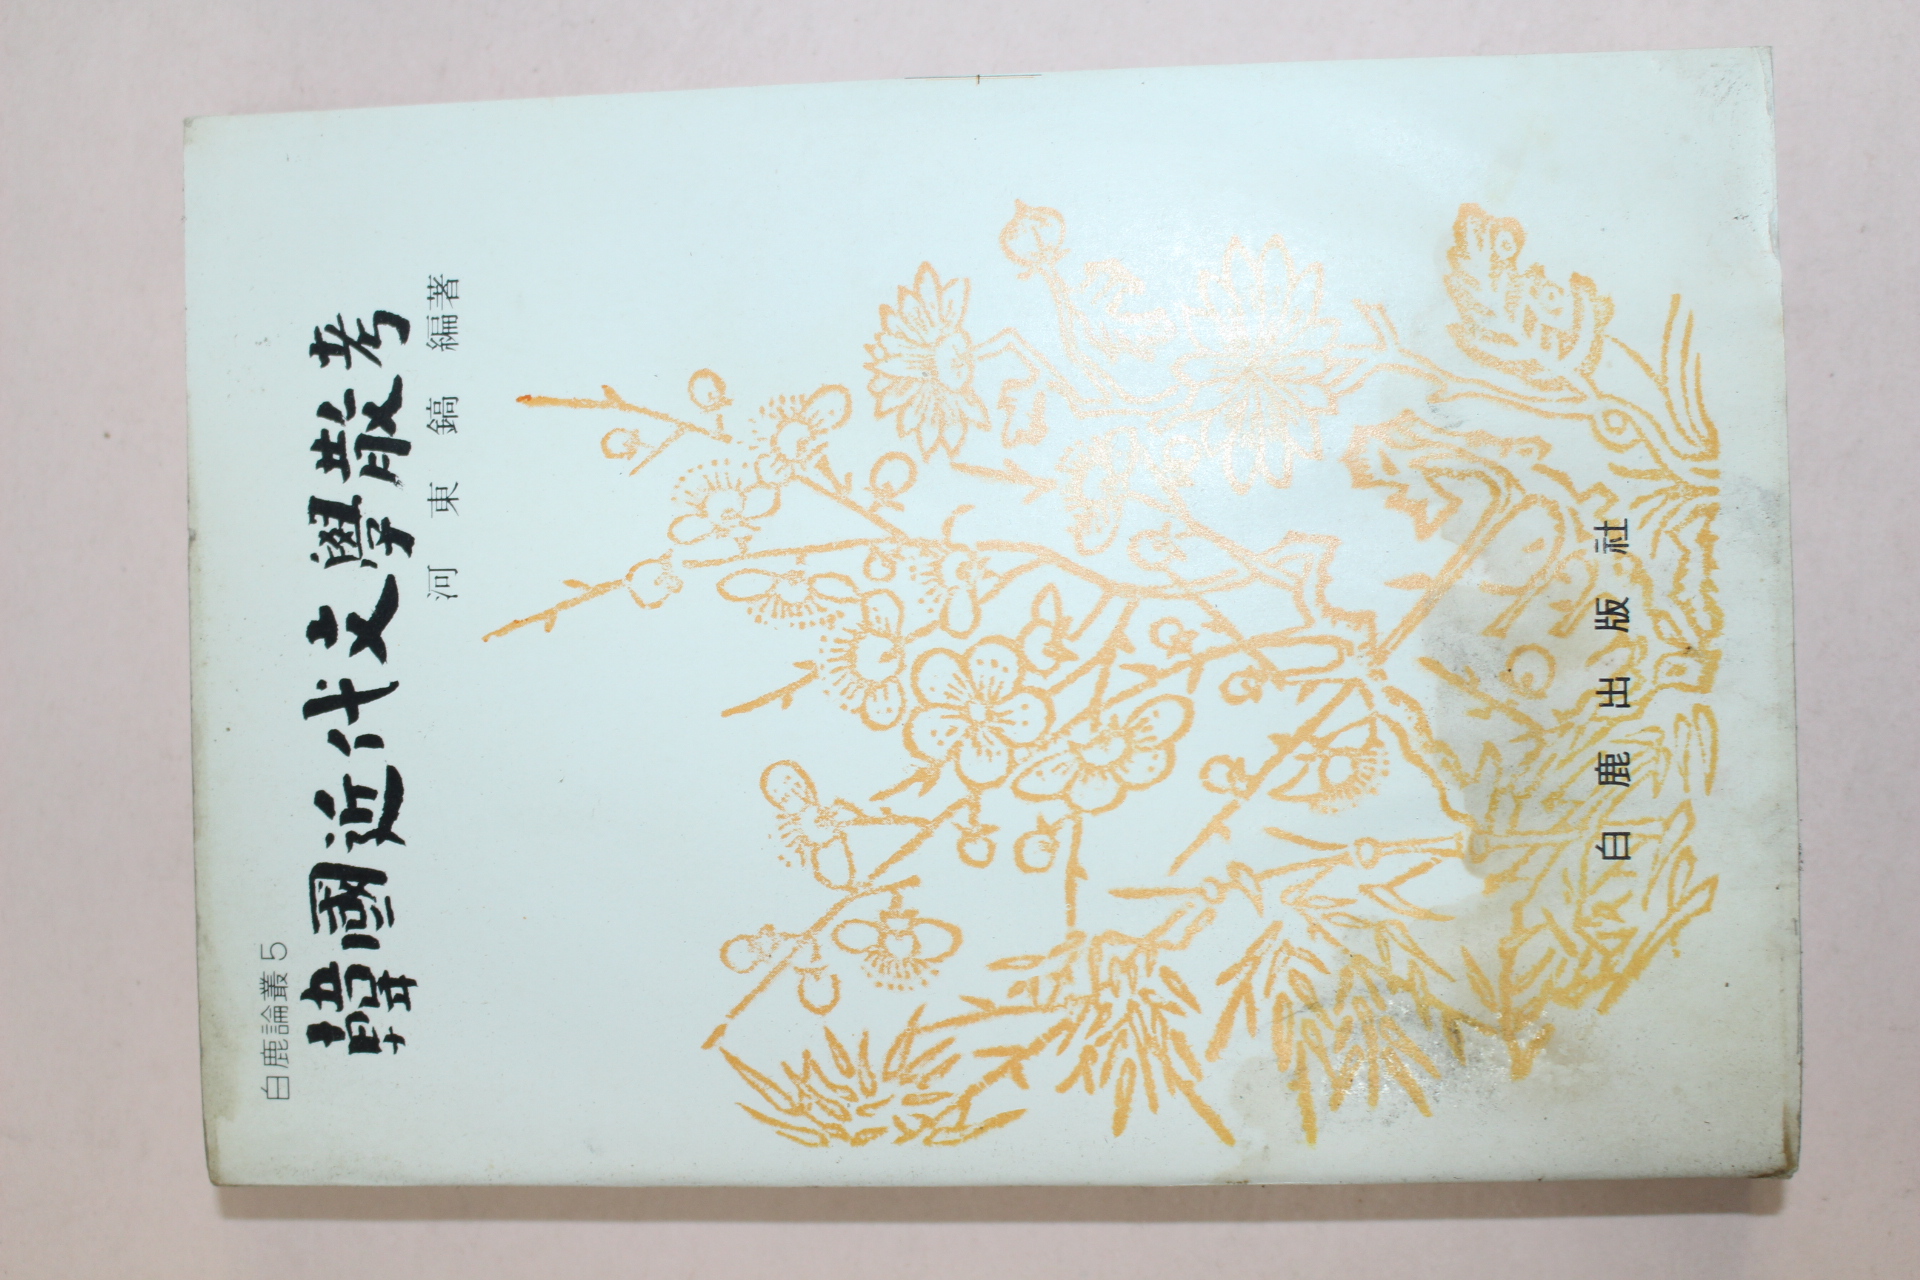 白鹿論叢 5
韓國近代文學散考
河東鎬 編著
白鹿出版社